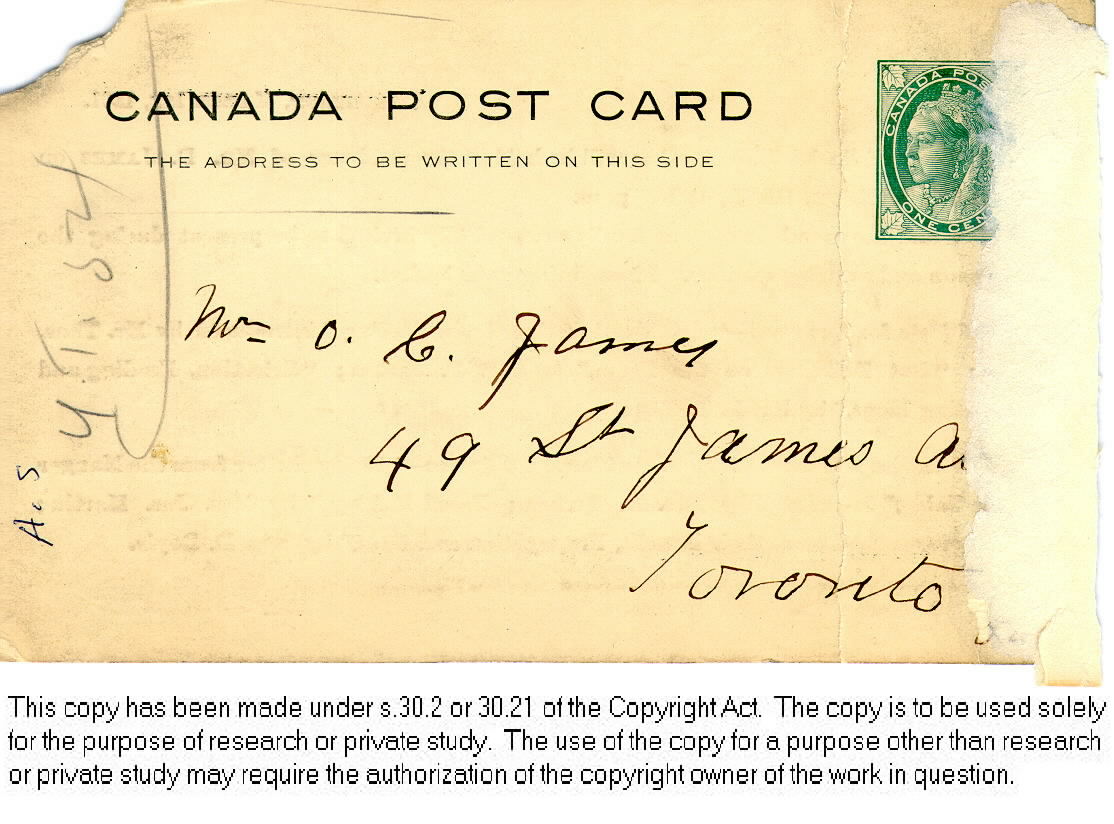 CANADA POST CARD
THE ADDRESS TO BE WRITTEN ON THIS SIDE
CANADA POS
ONE CEN
Mr O. C. James
49 St James A
Toronto
This copy has been made under s.30.2 or 30.21 of the Copyright Act. The copy is to be used solely
for the purpose of research or private study. The use of the copy for a purpose other than research
or private study may require the authorization of the copyright owner of the work in question.